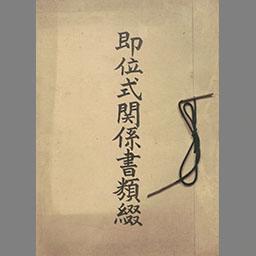 即位式関係書類綴